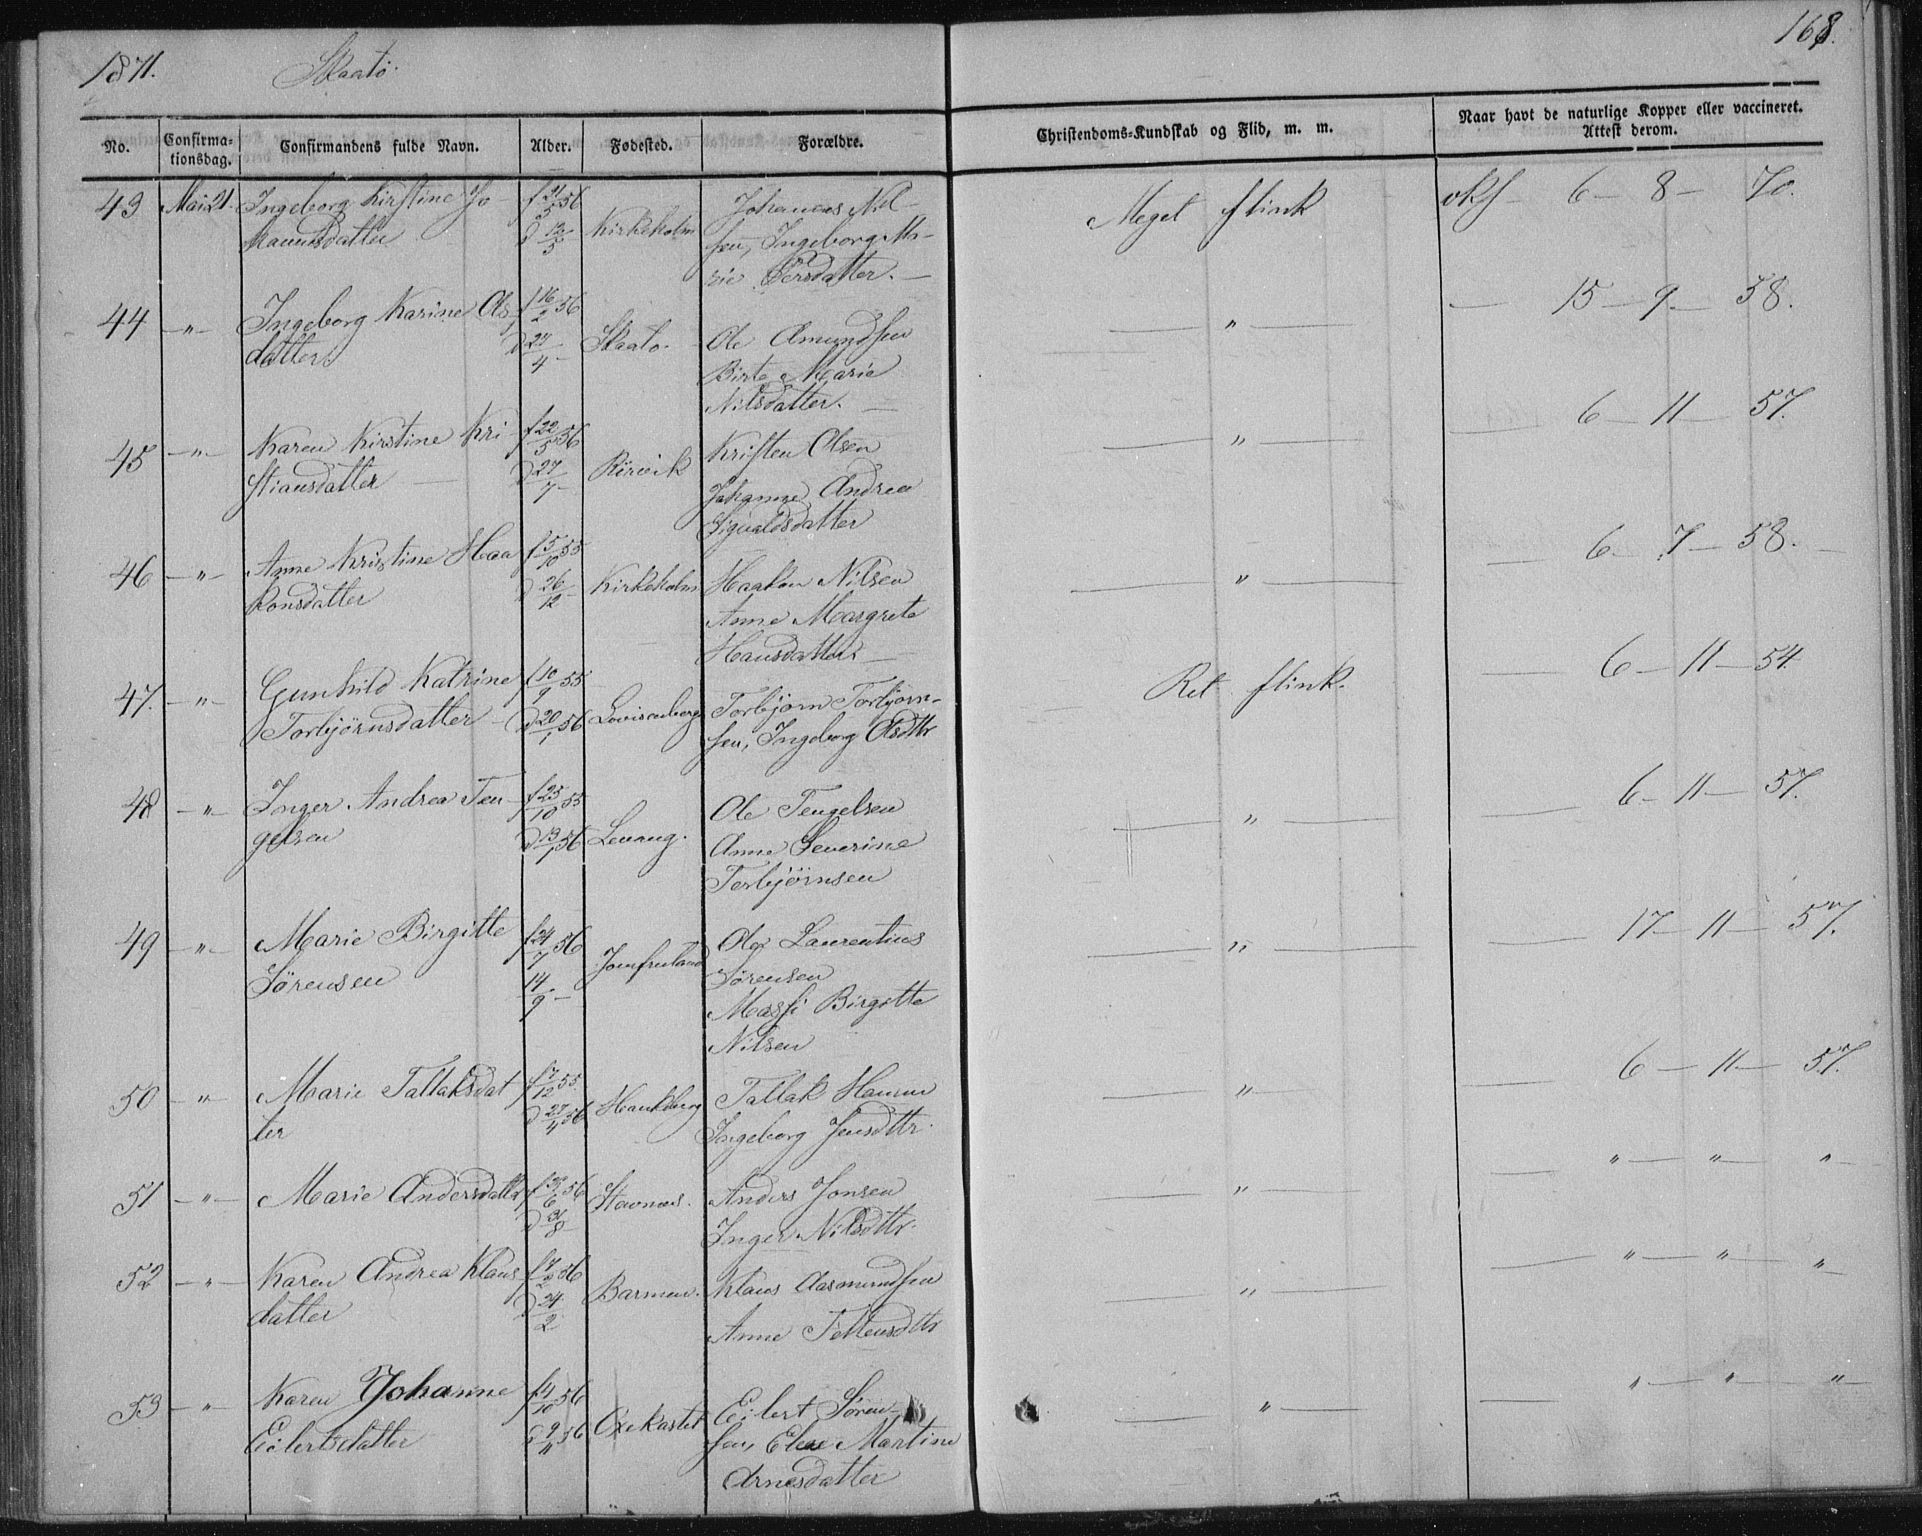 1871. Skaatö. 168.
No. Confirma-tionsdag. Confirmandens fulde Navn. Alder. Fødested. Forældre. Christendoms-Kundskab og Flid, m. m. Naar havt de naturlige Kopper eller vaccineret. Attest derom.
43 Mai 21. Ingeborg Kirstine Jo f 21/5 56 Johannes Nil- Meget flink vKf 6 — 8 — 70.
hannesdatter d 12/5 Kirkeholm sen, Ingeborg Ma-
rie Persdatter. —
44 — " — Ingeborg Karine Ols f 16/2 56 — " — — 15 — 9 — 58.
datter d 27/4 — Skaatö. Ole Amundsen
Birte Marie
Nilsdatter. —
45 — " — Karen Kirstine Kri f 22/5 56 Kristen Olsen — " — — 6 — 11 — 57.
stiansdatter — d 27/7 — Rörvik Johanne Andrea
Sigvaldsdatter
46 — " — Anne Kristine Haa f 5/10 55 — " — — 6 — 7 — 58. —
konsdatter d 26/12 — Kirkeholm Haakon Nilsen
Anne Margrete
Hansdatter —
47. — " Gunhild Katrine f 10/9 55 Ret flink. — 6 — 11 — 54
Torbjörnsdatter — d 20/1 56 Lovisenberg Torbjörn Torbjörn-
sen, Ingeborg Olsdttr
48 — " — Inger Andrea Ten f 25/10 55 Ole Tengelsen — " — — 6 — 11 — 57.
gelsen d 13/1 56 Levang. Anne Severine
Torbjörnsen
49 — " — Marie Birgitte f 24/7 56 Ole Laurentius — " — — 17 — 11 — 57.
Sörensen 14/9 — Jomfruland Sörensen
Massi Birgitte
Nilsen
50 — " — Marie Tallaksdat f 7/12 55 Tallak — " — — 6 — 11 — 57.
ter d 27/4 56 Ingeborg Jensdttr.
51 — " — Marie Andersdatter f 30/6 56 Anders Jonsen — " — — " — " — "
d 31/8 Inger Nilsdttr.
52 — " — Karen Andrea Klaus f 7/2 56 Barmen. Klaus Aasmundsen — " — — " — " — "
datter d 24/2 Anne
53 — " Karen Johanne f 4/10 56 Eilert Sören- — " — — " — " — "
Eilertsdatter d 9/11 56 Oxekastet sen, Elen Martine
Arnesdatter